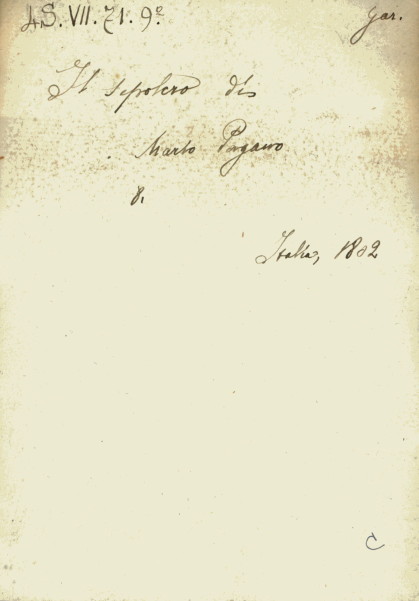 4.S. VII. 71. 9º
Gar.
Il sepolcro di
Mario Pagano
8.
Italia, 1802
C